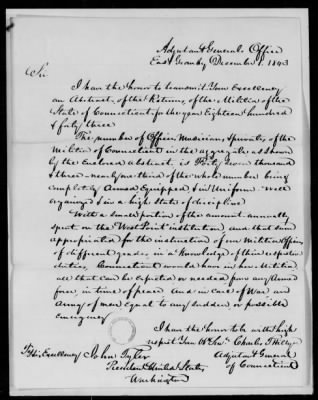 Adjutant Generals Office
East Granby December 1. 1843
Sir
I have the honor to transmit Your Excellency
an Abstract of the Returns of the Militia of the
State of Connecticut for the year Eighteen hundred
& forty three.
The number of Officers Musicians & privates of the
Militia of Connecticut in the aggregate as shown
by the Enclosed abstract is Forty seven thousand
& three - nearly one third of the whole number being
completely Armed Equipped & in Uniform well
organized & in a high state of discipline
With a small portion of the amount annually
spent on the West Point institution and that sum
appropriated for the instruction of our Militia Officers
of different grades in a knowledge of their respective
duties, Connecticut would have in her Militia
all that can be expected or needed from any Armed
force in time of peace and in case of War an
Army of men equal to any sudden or possible
emergency
I have the honor to be with high
respect Your Ob. Sert. Charles T Hillyer
Adjutant General
of Connecticut
To His Excellency John Tyler
President United States
Washington